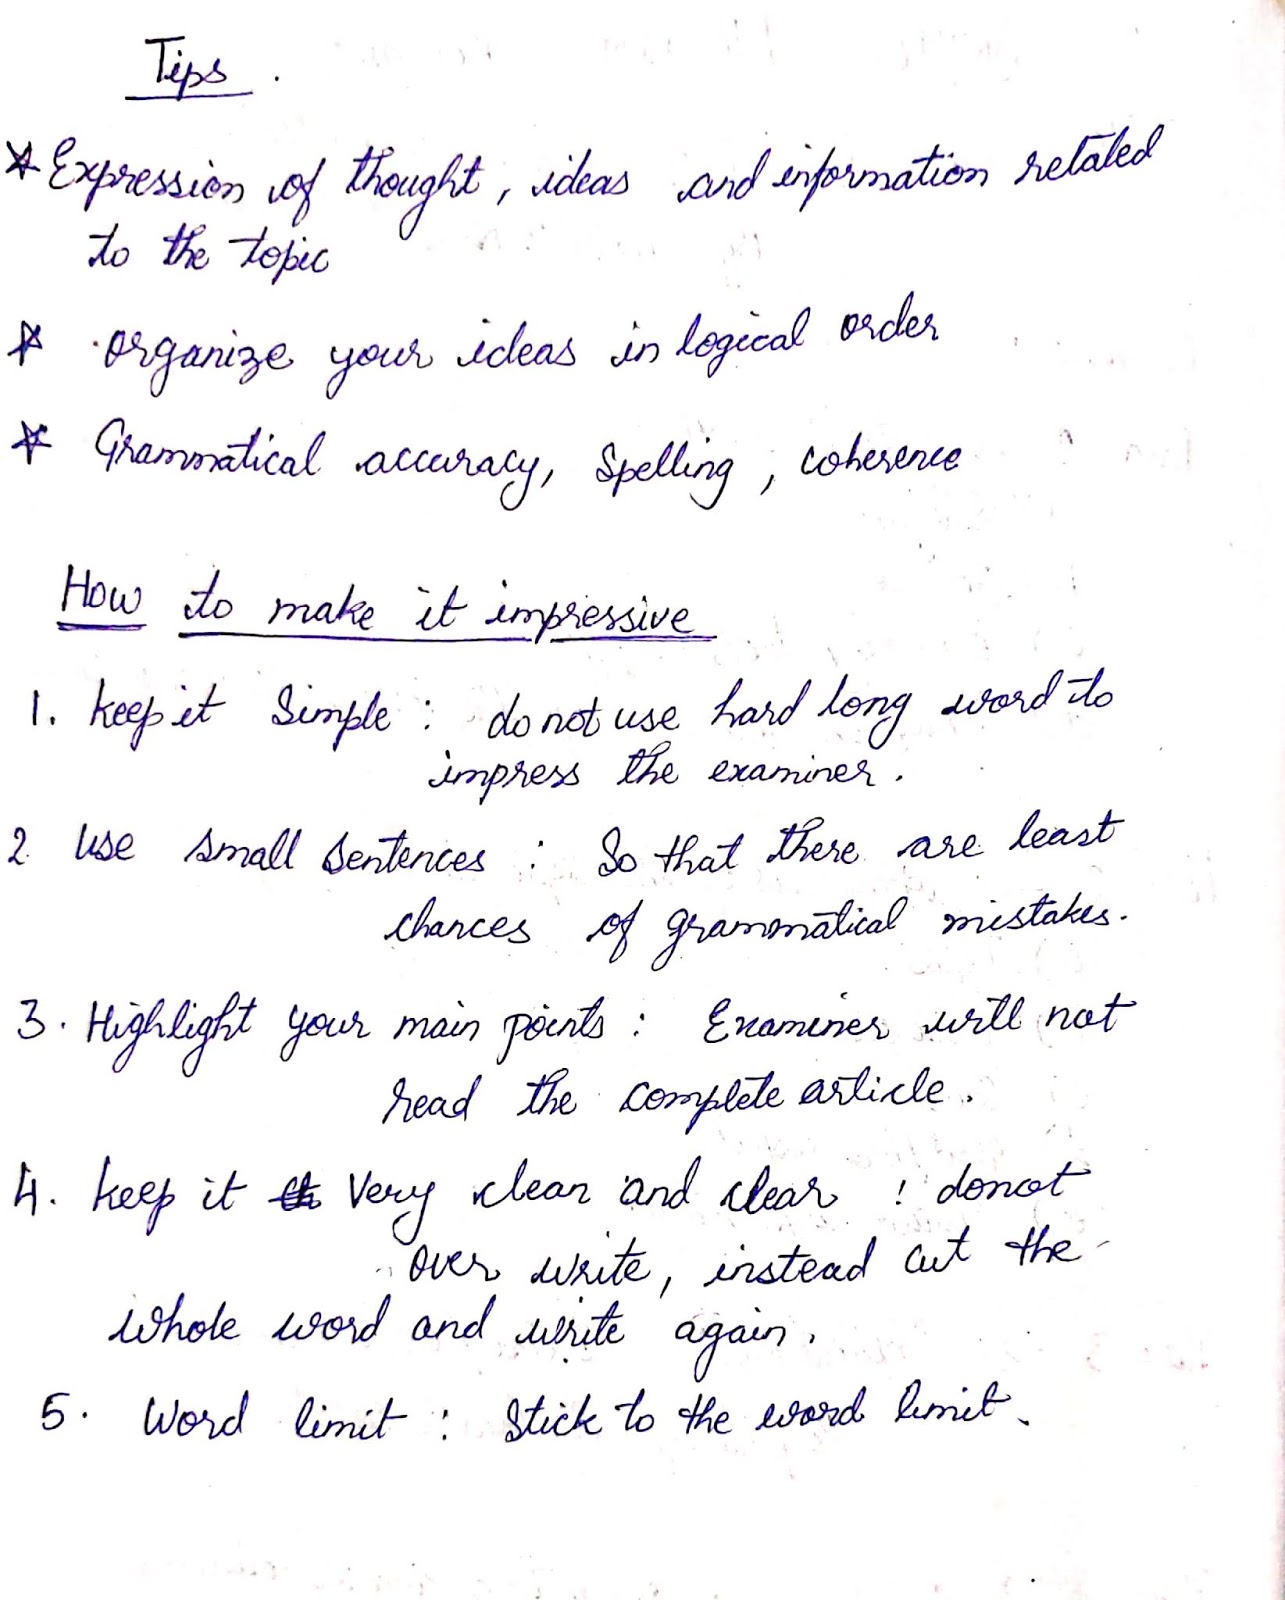 Tips .
* Expression of thought, ideas and information related
to the topic
* organize your ideas in logical order
* Grammatical accuracy, Spelling, coherence
How to make it impressive
1. keep it Simple : do not use hard long word to
impress the examiner.
2 Use small sentences : So that there are least
chances of grammatical mistakes.
3. Highlight your main points : Examiner will not
read the complete article.
4. keep it very clean and clear : donot
over write, instead cut the
whole word and write again.
5. Word limit : Stick to the word limit.